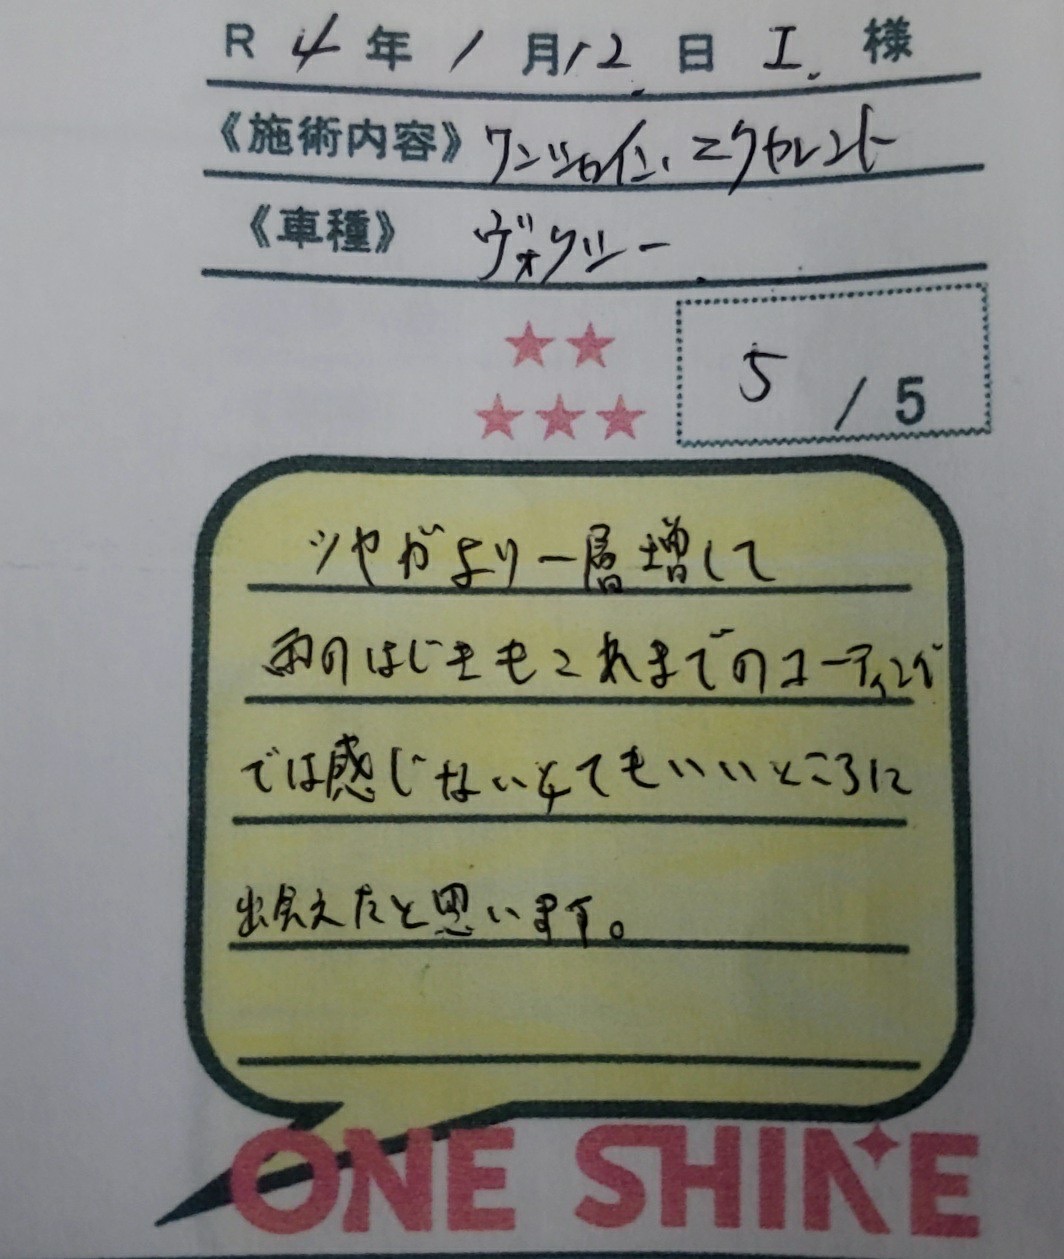 R 4 年 1 月 12 日 I. 様
《施術内容》 ワンシャイン、エクセレント
《車種》 ヴォクシー
5 / 5
ツヤがより一層増して
雨のはじきもこれまでのコーティング
では感じないとてもいいところに
出会えたと思います。
ONE SHINE